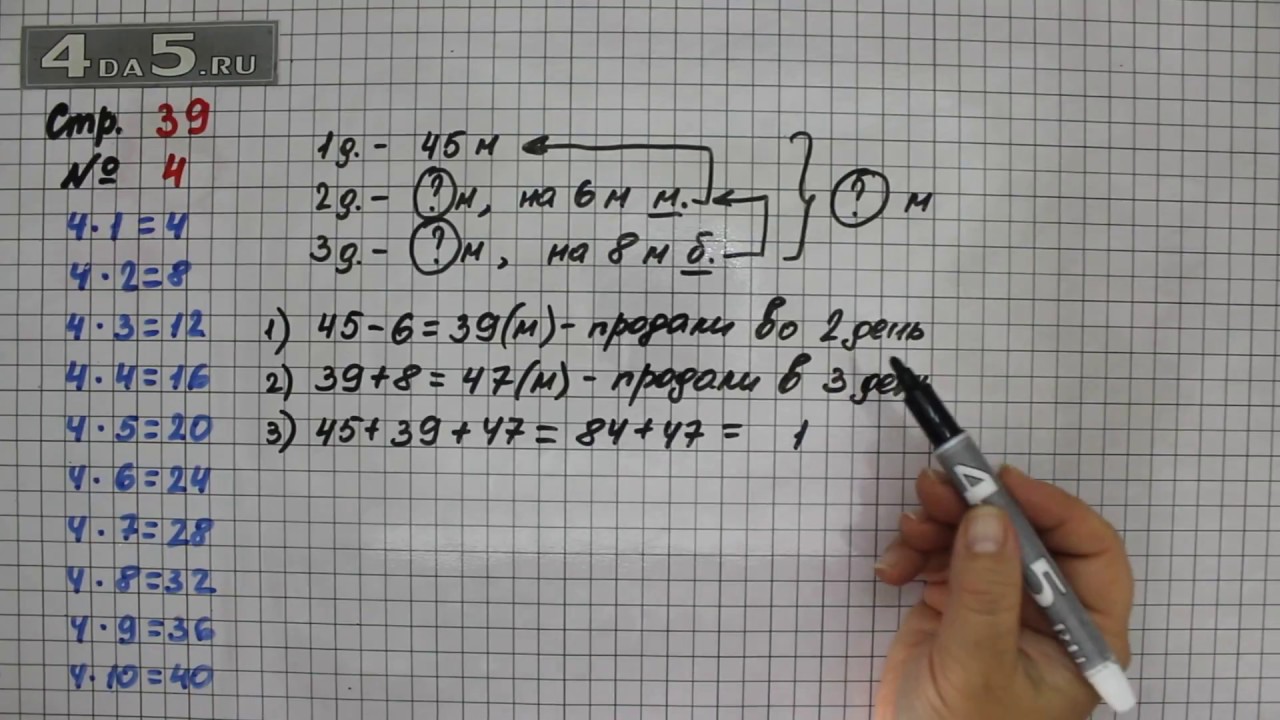 4DA5.RU
Стр. 39
№ 4
4·1=4
4·2=8
4·3=12
4·4=16
4·5=20
4·6=24
4·7=28
4·8=32
4·9=36
4·10=40
1д.- 45 м
2д.- ? м, на 6 м м.
3д.- ? м, на 8 м б.
? м
1) 45-6=39(м)- продали во 2 день
2) 39+8=47(м)- продали в 3 день
3) 45+39+47=84+47= 1
4 5